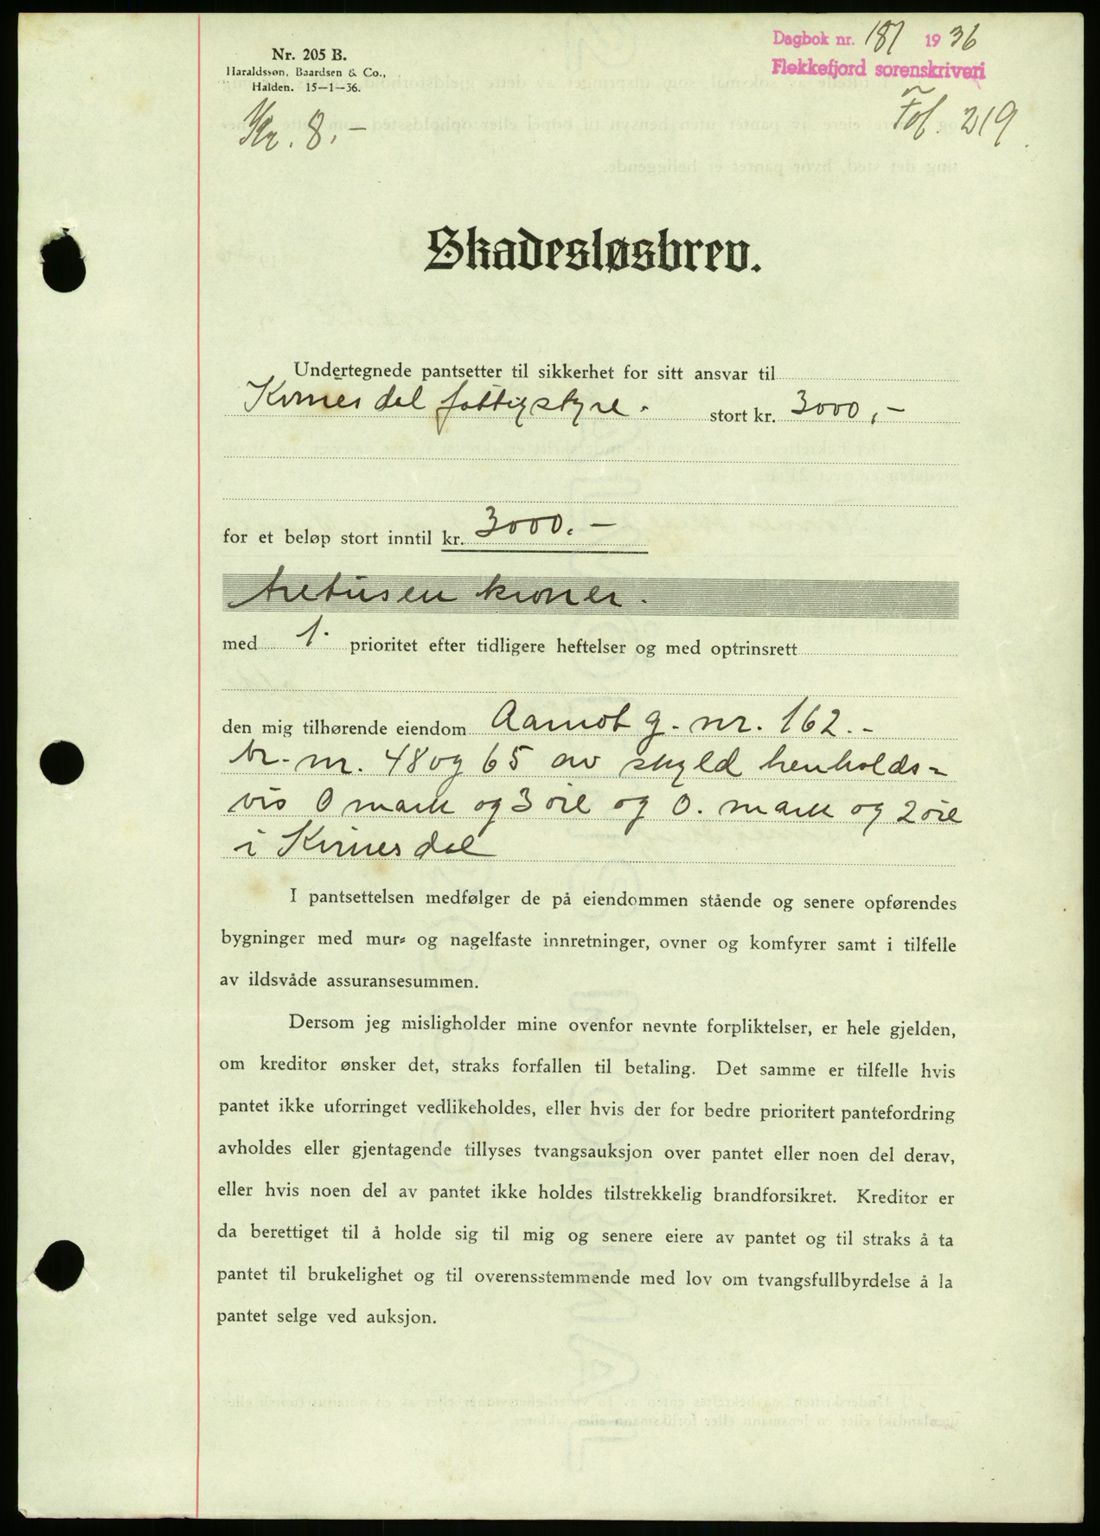 Nr. 205 B.
Haraldssøn, Baardsen & Co.,
Halden. 15—1—36.
Dagbok nr. 187 1936
Flekkefjord sorenskriveri
Kr. 8.-
Fol. 219.
Skadesløsbrev.
Undertegnede pantsetter til sikkerhet for sitt ansvar til
Kvinesdal fattigstyre. stort kr. 3000,-
for et beløp stort inntil kr. 3000.-
tretusen kroner.
med 1. prioritet efter tidligere heftelser og med optrinsrett
den mig tilhørende eiendom Aamot g. nr. 162.-
br. nr. 48 og 65 av skyld henholds=
vis 0 mark og 3 øre og 0. mark og 2 øre
i Kvinesdal
I pantsettelsen medfølger de på eiendommen stående og senere opførendes
bygninger med mur- og nagelfaste innretninger, ovner og komfyrer samt i tilfelle
av ildsvåde assuransesummen.
Dersom jeg misligholder mine ovenfor nevnte forpliktelser, er hele gjelden,
om kreditor ønsker det, straks forfallen til betaling. Det samme er tilfelle hvis
pantet ikke uforringet vedlikeholdes, eller hvis der for bedre prioritert pantefordring
avholdes eller gjentagende tillyses tvangsauksjon over pantet eller noen del derav,
eller hvis noen del av pantet ikke holdes tilstrekkelig brandforsikret. Kreditor er
da berettiget til å holde sig til mig og senere eiere av pantet og til straks å ta
pantet til brukelighet og til overensstemmende med lov om tvangsfullbyrdelse å la
pantet selge ved auksjon.